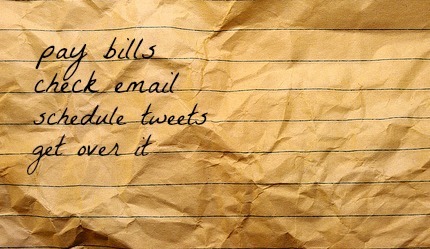 pay bills
check email
schedule tweets
get over it